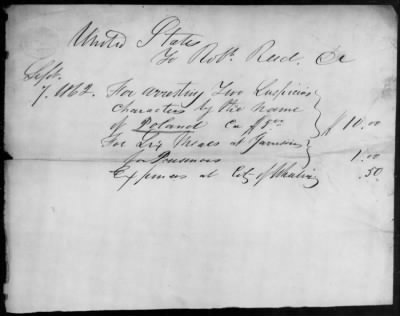 United States
To Robt. Reed. Dr
Sept.
7. 1862. For arresting Two Suspicious
characters by the name
of Poland Ca $5.00 $10.00
For Six Meals at Garrison
for Prisoners 1.00
Expenses at City of .50